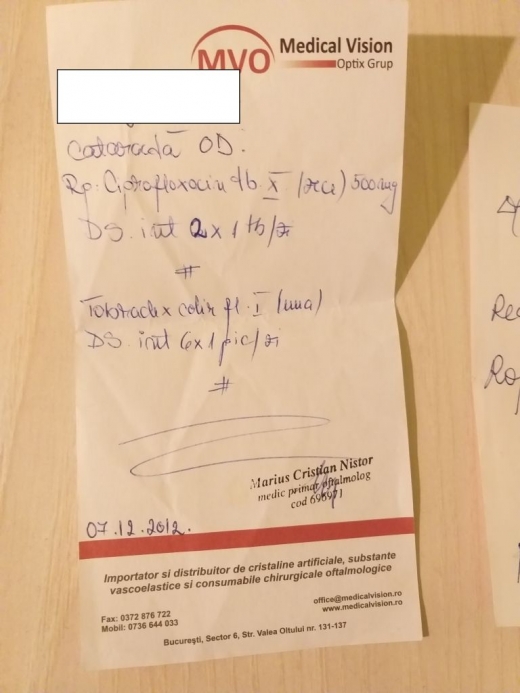 MVO Medical Vision
Optix Grup
Cataractă OD.
Rp. Ciprofloxacin tb. X (zece) 500mg
DS. int 2x1 tb/zi
#
Tobradex colir fl. I (una)
DS. int 6x1 pic/zi
#
Marius Cristian Nistor
medic primar oftalmolog
cod 696971
07.12.2012.
Importator si distribuitor de cristaline artificiale, substante
vascoelastice si consumabile chirurgicale oftalmologice
Fax: 0372 876 722
Mobil: 0736 644 033
office@medicalvision.ro
www.medicalvision.ro
Bucureşti, Sector 6, Str. Valea Oltului nr. 131-137